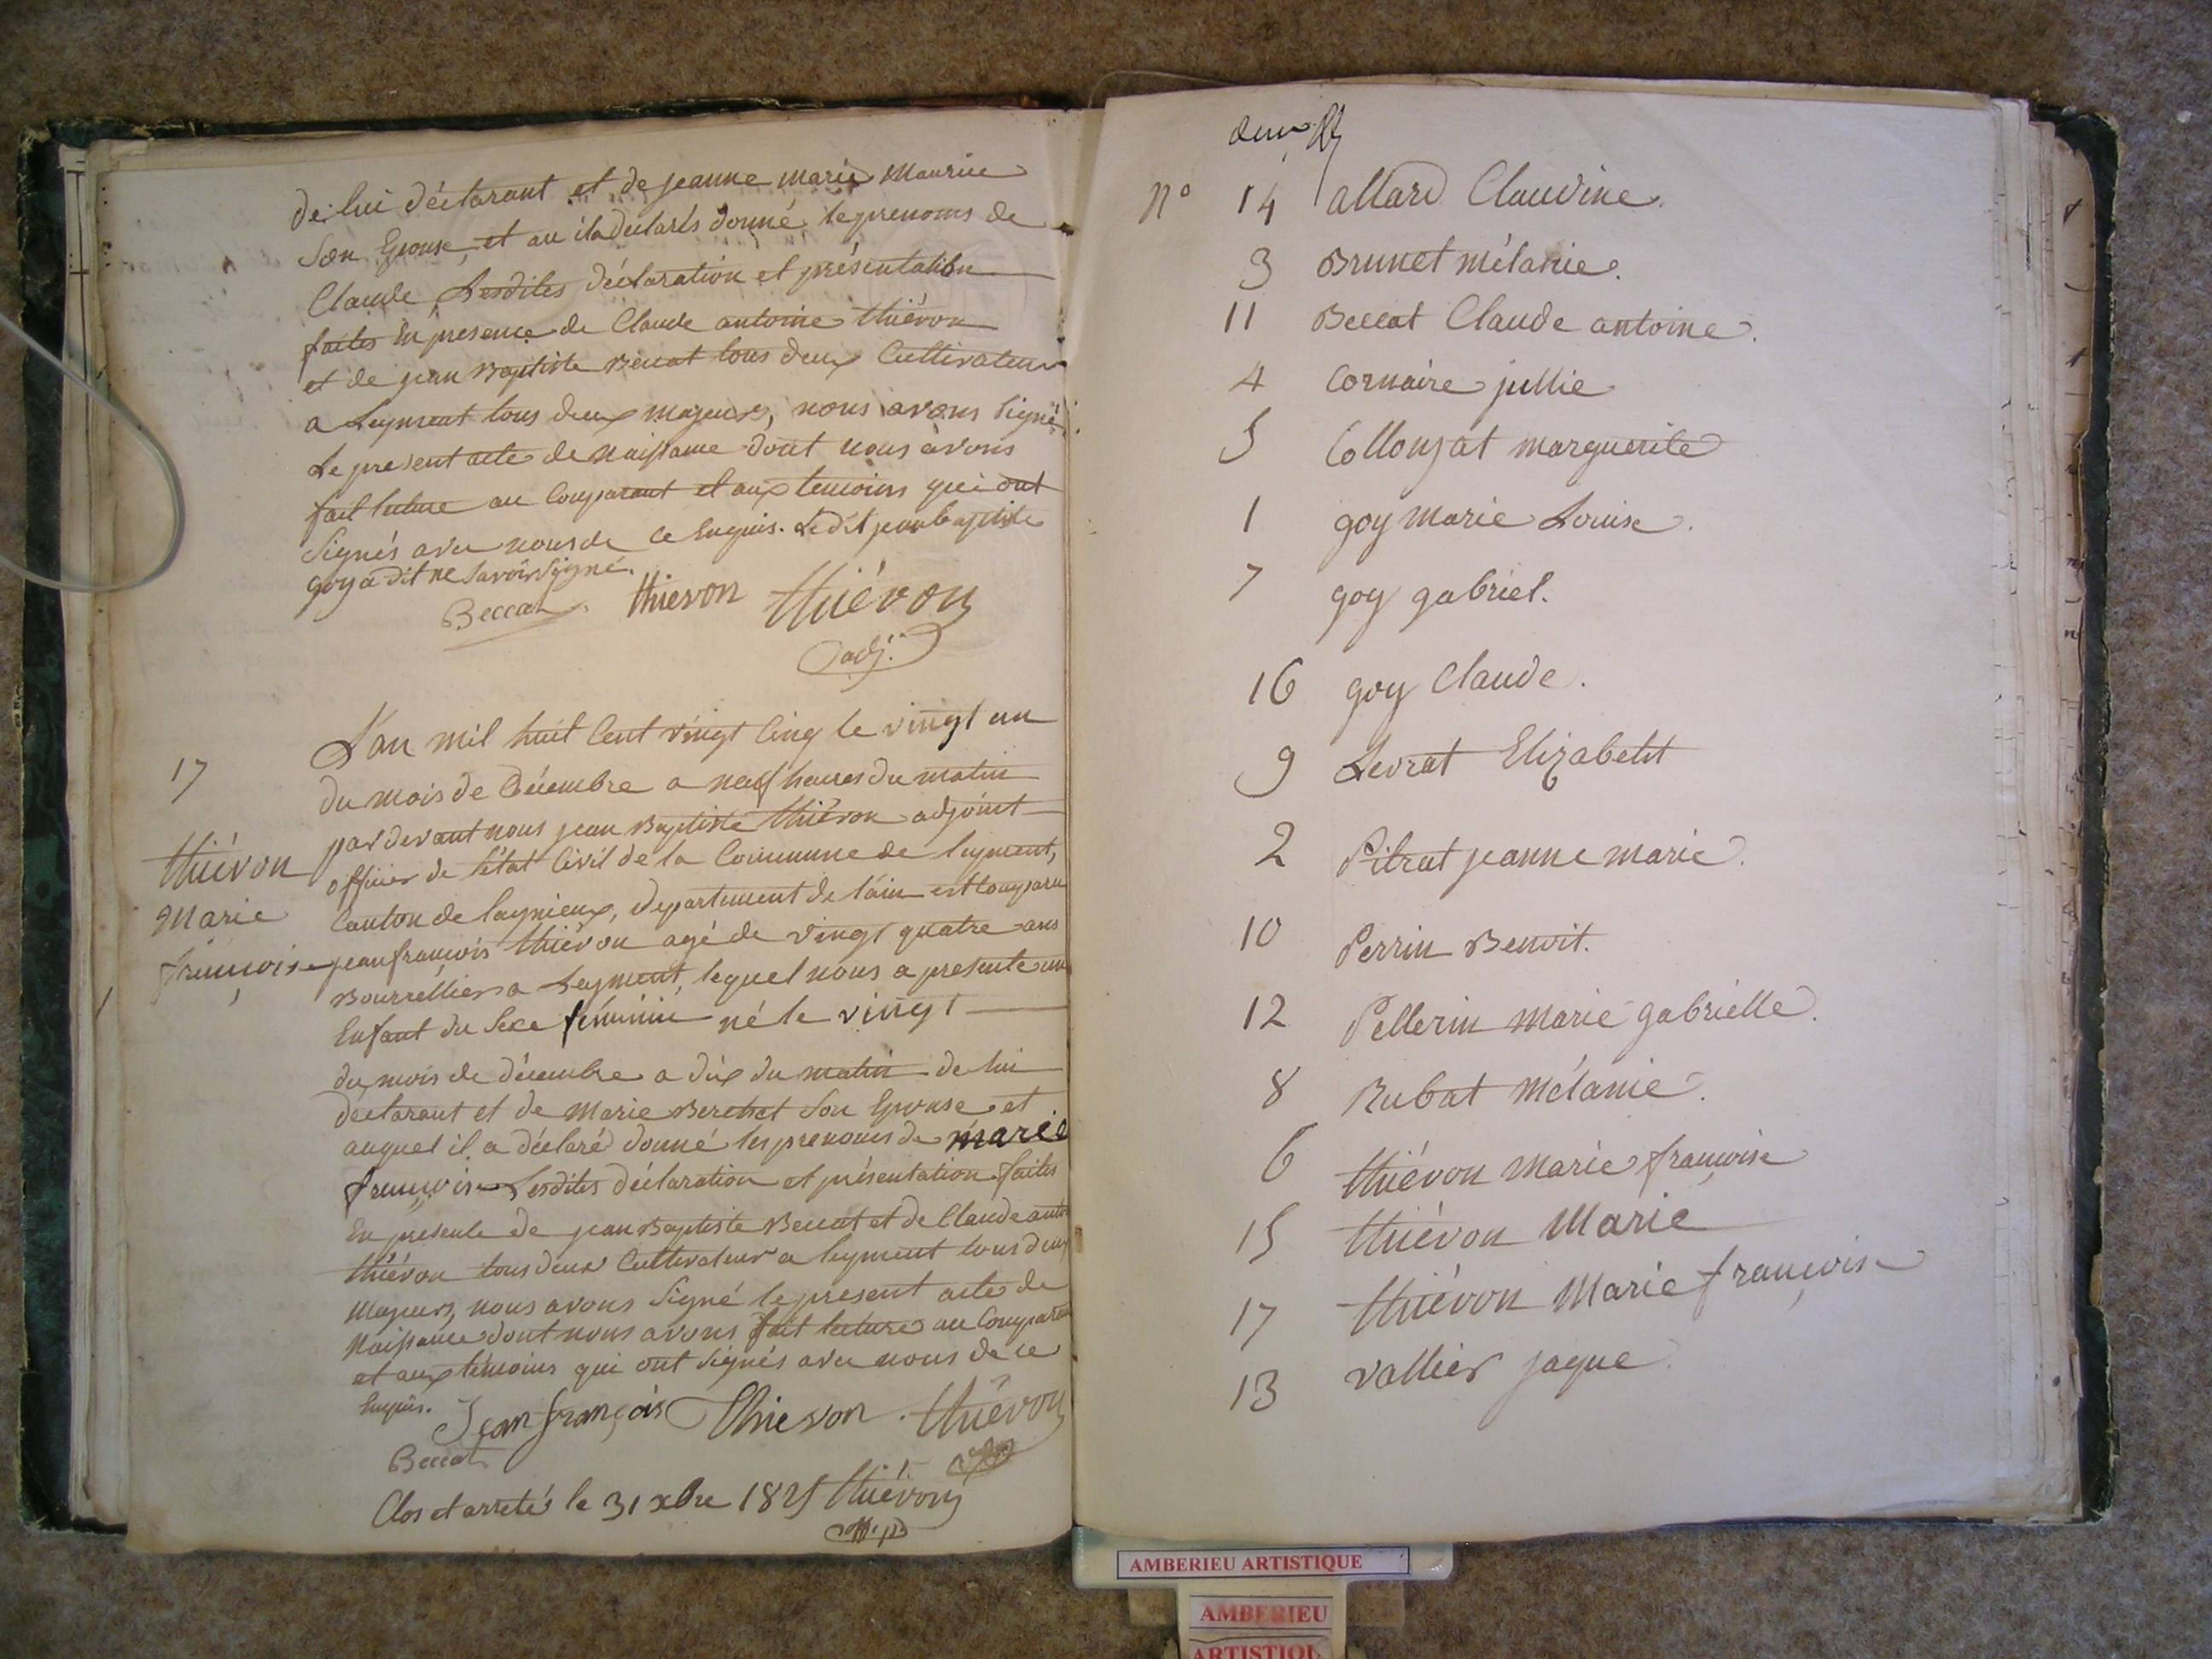 de lui déclarant et de jeanne marie Maurice
Son Epouse, et au il a déclarés donné le prenoms de
Claude, Lesdites déclaration et présentation
faites En presence de Claude antoine thiévon
et de jean Baptiste Beccat tous deux Cultivateur
a Leyment tous deux majeurs, nous avons Signé
Le present acte de Naissance dont nous avons
fait lecture au Comparant et aux temoins qui ont
Signés avec nous de ce Enquis. Le dit jean baptiste
goy a dit ne Savoir Signé.
Beccat thievon thiévon
adj.
17
thiévon
Marie
françoise
L'an mil huit Cent vingt Cinq le vingt un
du mois de Décembre a neuf heures du matin
par devant nous jean Baptiste thiévon adjoint
officier de l'état Civil de la Commune de leyment,
Canton de lagnieux, département de l'ain est Comparu
jean françois thiévon agé de vingt quatre ans
Bourrellier a Leyment, lequel nous a presenté un
Enfant du Sexe féminin né le vingt
du mois de décembre a dix du matin de lui
déclarant et de Marie Berchet Son Epouse et
auquel il a déclaré donné les prenoms de marie
françoise Lesdites déclaration et présentation faites
En presente de jean Baptiste Beccat et de Claude anto
thiévon tous deux Cultivateur a leyment tous deux
Majeurs, nous avons Signé le present acte de
Naissance dont nous avons fait lecture au Comparant
et aux témoins qui ont Signés avec nous de ce
Enquis.
Jean françois Thievon thiévon
Beccat
Clos et arreté le 31 xbre 1825 thiévon
N° 14 allard Claudine.
3 Brunet mélanie.
11 Beccat Claude antoine.
4 Cornaire jullie
5 Collonjat marguerite
1 goy marie Louise.
7 goy gabriel.
16 goy Claude.
9 Levrat Elizabeht
2 Pitrat jeanne marie.
10 Perrin Benoit.
12 Pellerin marie gabrielle.
8 Rubat Mélanie.
6 thiévon marie françoise
15 thiévon Marie
17 thiévon Marie françoise
13 vallier jaque.
AMBERIEU ARTISTIQUE
AMBERIEU
ARTISTIQU